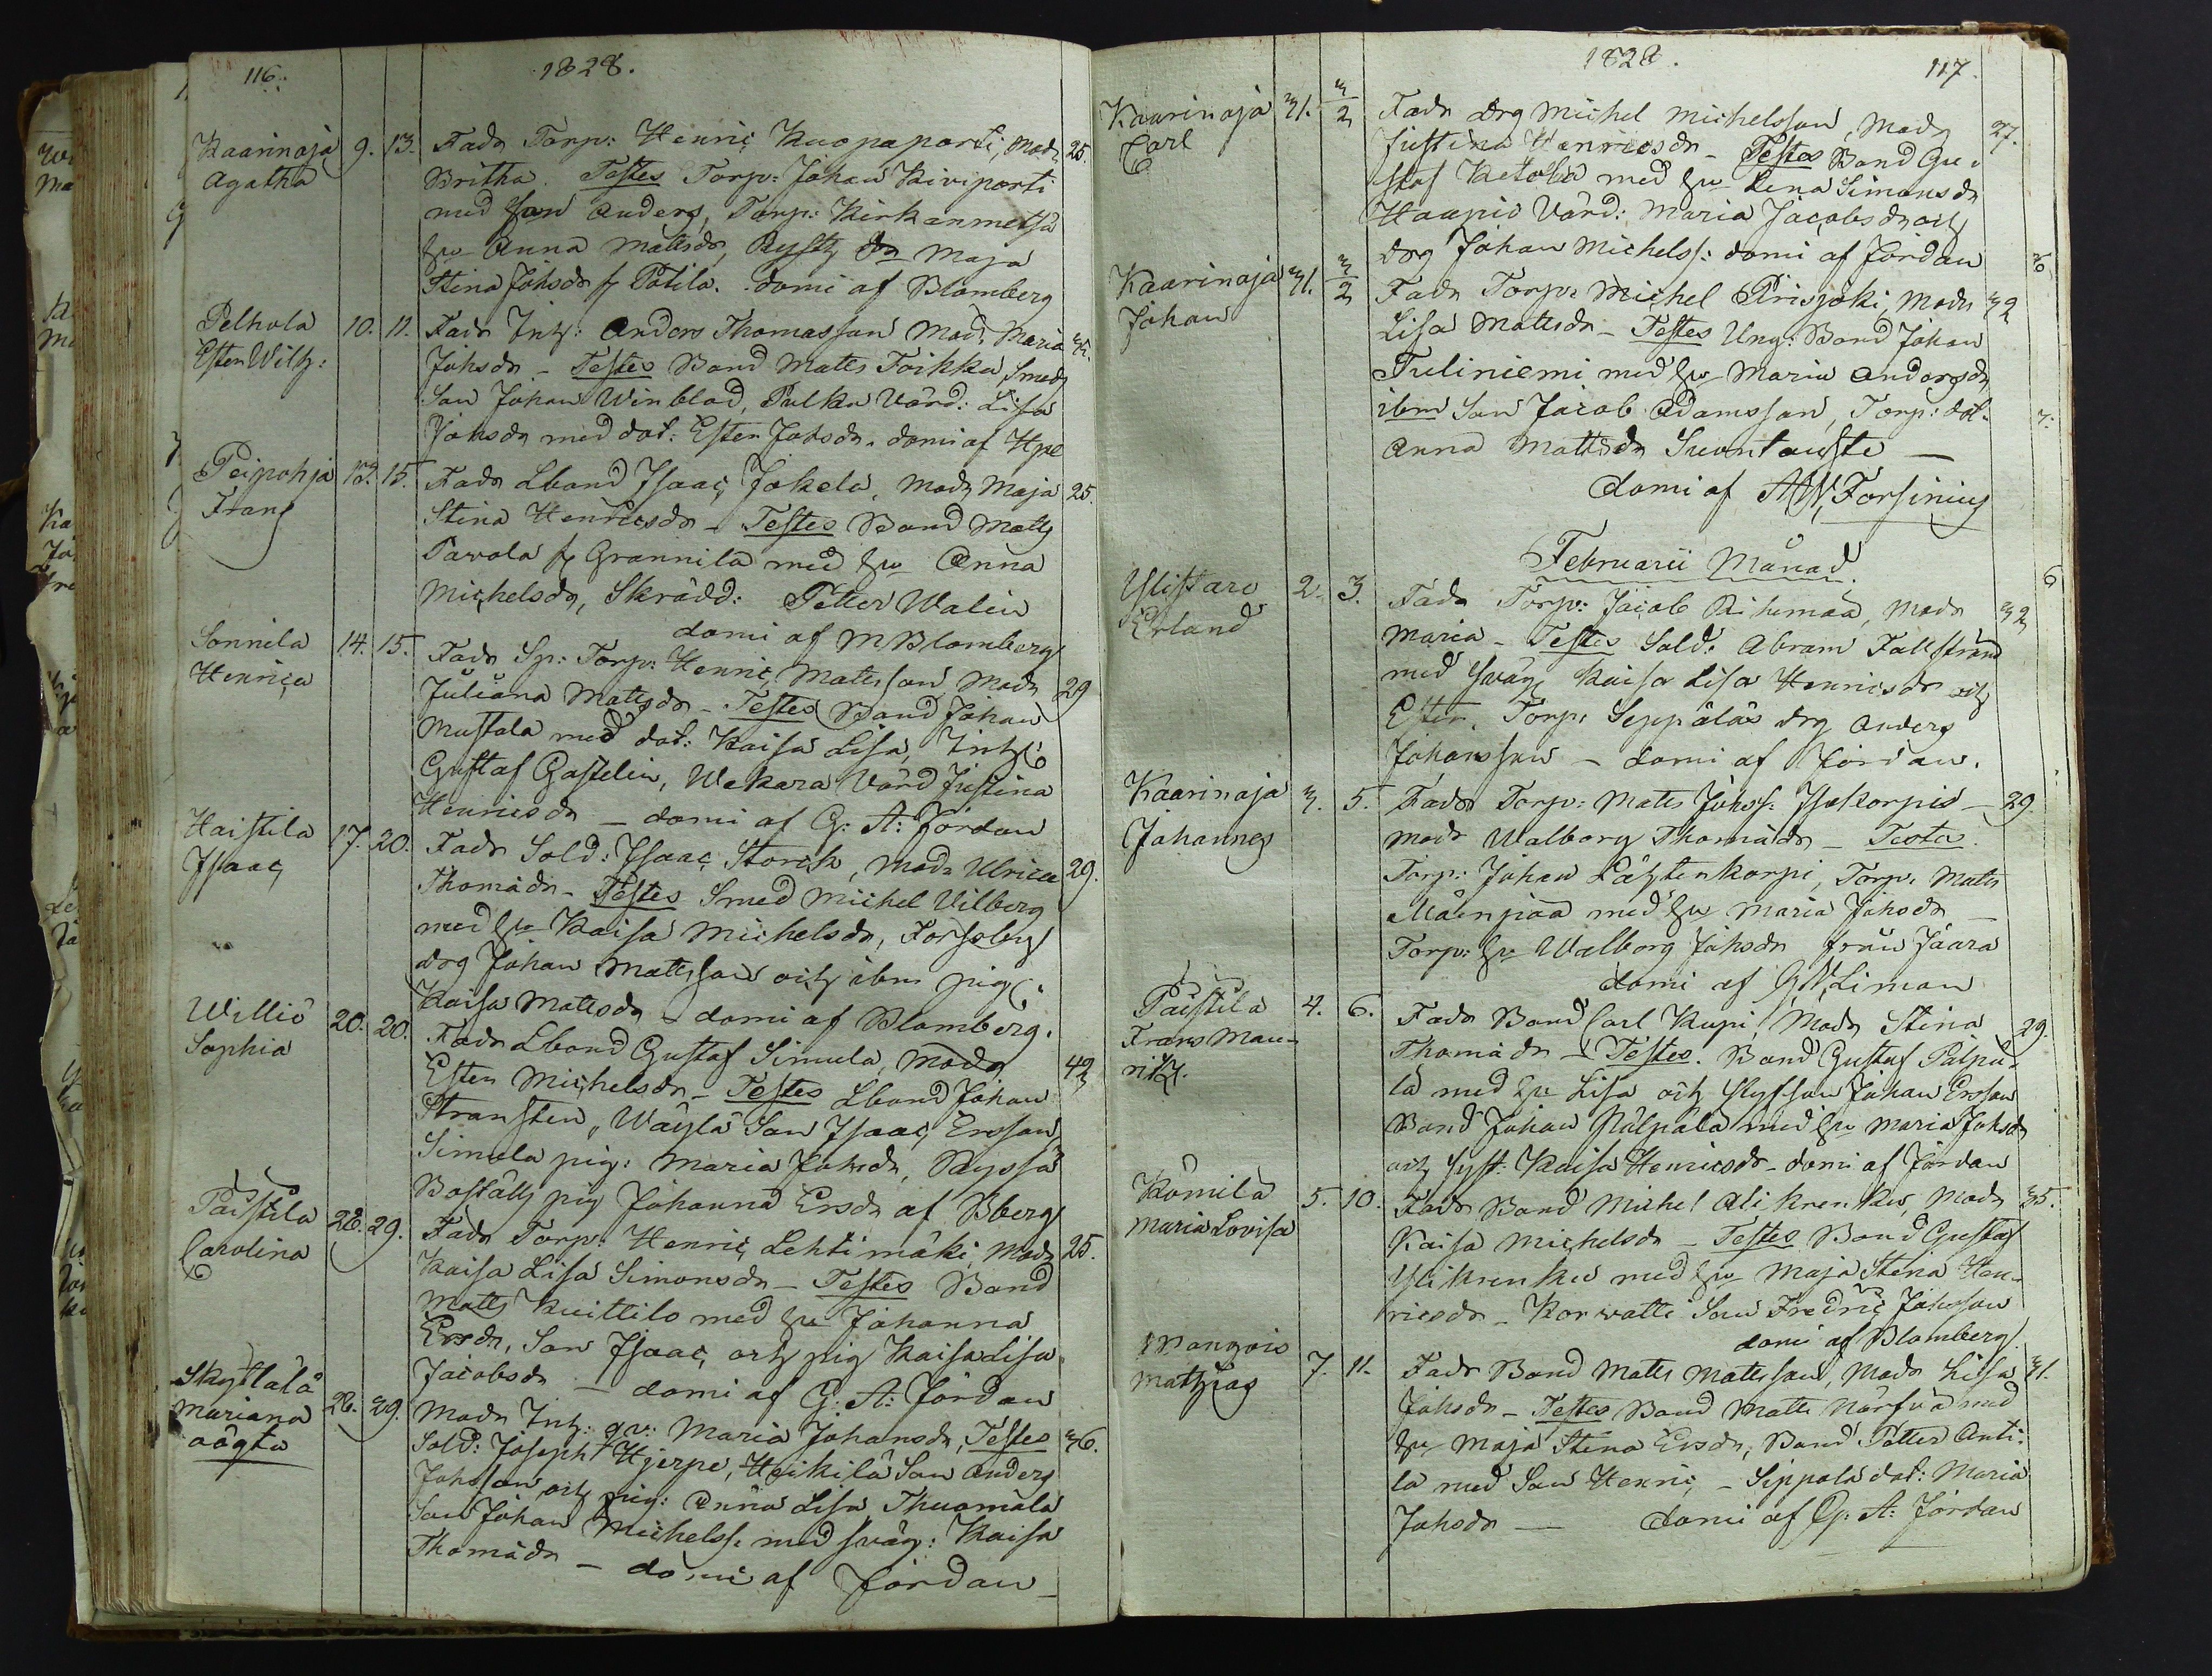 116.
1828.
Kaarinoja 9. 13. Fadr Torp: Henric Kuopaporti, Modr 25.
Agatha
Britha. Testes Torp: Johan Kiviporti
med son Anders, Torp: Kirkanmetsä
hu Anna Mattsdr, Maja
Stina Johsdr fr Potila. domi af Blomberg
Pelhola 10. 11. Fadr Inh: Anders Thomasson Modr Maria
Ester Wilh:
Johsdr – Testes Bond Matts Toikka, Smeds
Son Johan Winblad, Palka Värd: Lisa
Johsdr med dot: Ester Johsdr. domi af Hpe
Peipohja 13. 15. Fadr Lbond Isaac Jokela, Modr Maja 25
Frans
Stina Henricsdr – Testes Bond Matts
Pavola fr Grannila med hu Anna
Michelsdr, Skrädd: Petter Walin
domi af M Blomberg
Sonnila 14. 15. Fadr Sp: Torp: Henric Matsson Modr 29
Henrica
Juliana Mattsdr – Testes Bond Johan
Mustala med dot: Kaisa Lisa, Inh:
Gustaf Gastelin, Wakara Värd Justina
Henricsdr – domi af G: A: Jordan
Haistila 17. 20. Fadr Sold: Isaac Storck, Modr Ulrica 29.
Isaac
Thomädr – Testes Smed Michel Vilberg
med hu Kaisa Michelsdr, Forssby
drg Johan Mattsson och ibm pig:
Kaisa Mattsdr – domi af Blomberg.
Williö 20. 20. Fadr Lbond Gustaf Simula, Modr 42
Sophia
Ester Michelsdr – Testes Lbond Johan
Stransten, Wäylä Son Isaac Ersson,
Simula pig: Maria Johsdr, Ryssä
Boställs pig Johanna Ersdr af Bberg
Paistila 28. 29. Fadr Torp: Henric Lehtimäki, Modr 25.
Carolina
Kaisa Lisa Simonsdr – Testes Bond
Matts Kuittilo med hu Johanna
Ersdr, Son Isaac och pig Kaisa Lisa
Jacobsdr – domi af G: A: Jordan
Skyttälä
Mariana 28. 29. Modr Inh: qv: Maria Johansdr, Testes 36.
oägta
Sold: Joseph Hjerpe, Heikilä Son Anders
Johsson och pig: Anna Lisa Thuomala
Son Johan Michelss: med swäg: Kaisa
Thomädr – domi af Jordan –
1828.
117.
Kaarinoja 31. 3/2 Fadr drg Michel Michelsson, Modr 27.
Carl
Justina Henricsdr – Testes Bond Gu-
staf Ketola med hu Lena Simonsdr
Haapio Värd: Maria Jacobsdr och
drg Johan Michelss: domi af Jordan
Kaarinoja 31. 3/2 Fadr Torp: Michel Prisjoki, Modr 32
Johan
Lisa Mattsdr – Testes Ung: Bond Johan
Tuliniemi med hu Maria Andersdr
ibm Son Jacob Adamsson, Torp: dot:
Anna Mattsdr Suontauste –
domi af A W, Forsinius
Februarii Månad. 6
Ylistaro 2. 3. Fadr Torp: Jacob Rihimaa, Modr 32
Erland
Maria – Testes Sold: Abram Fallstrand
med swäg Kaisa Lisa Henricsdr och
Ester. Torp: Seppälä drg Anders
Johansson – domi af Jordan.
Kaarinoja 3. 5. Fadr Torp: Matts Johss: Isokorpio – 29.
Johannes
Modr Walborg Thomädr – Testes.
Torp: Johan Lähtenkorpi, Torp: Matts
Mäenpää med hu Maria Johsdr –
Torp: hu Walborg Johsdr från Jaara
domi af G, W, Liman
Paistila 4. 6. Fadr Bond Carl Kupi, Modr Stina 29.
Frans Mau-
ritz.
Thomädr – Testes. Bond Gustaf Pälpä-
lä med hu Lisa och Styfson Johan Ersson
Bond Johan Pälpälä med hu Maria Johsdr
och syst: Kaisa Henricsdr – domi af Jordan
Kömilä 5. 10. Fadr Bond Michel Alikrenku, Modr 35.
Maria Lovisa
Kaisa Michelsdr – Testes Bond Gustaf
Ylikrenku med hu Maja Stina Hen-
ricsdr – Korwatti Son Fredric Johsson
domi af Blomberg.
Mathias 7. 11. Fadr Bond Matts Mattsson, Modr Lisa 31.
Johsdr – Testes Bond Matts Närfvä med
hu Maja Stina Ersdr, Bond Petter Anti-
la med Son Henric, – Sippola dot: Maria
Johsdr — domi af G: A: Jordan